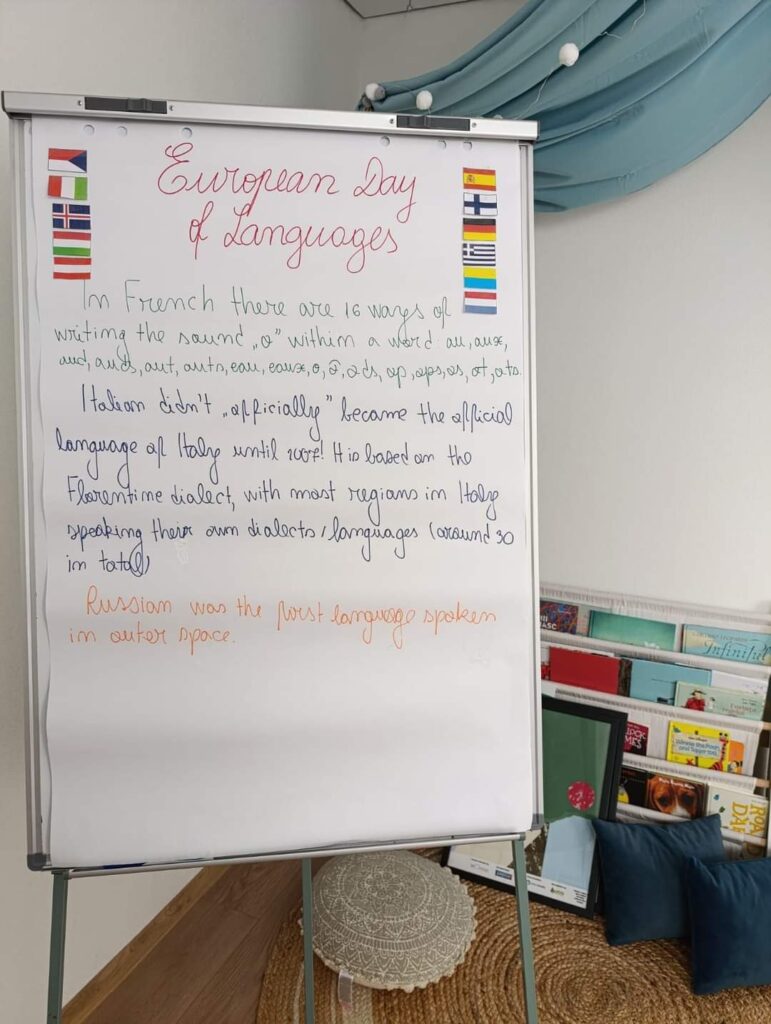 European Day
of Languages
In French there are 16 ways of
writing the sound „o" within a word: au, aux,
aud, auds, aut, auts, eau, eaux, o, ô, ods, op, ops, os, ot, ots.
Italian didn't „officially" became the official
language of Italy until 2007! It is based on the
Florentine dialect, with most regions in Italy
speaking their own dialects / languages (around 30
in total)
Russian was the first language spoken
in outer space.
Infinity
Winnie the Pooh
and Tigger too